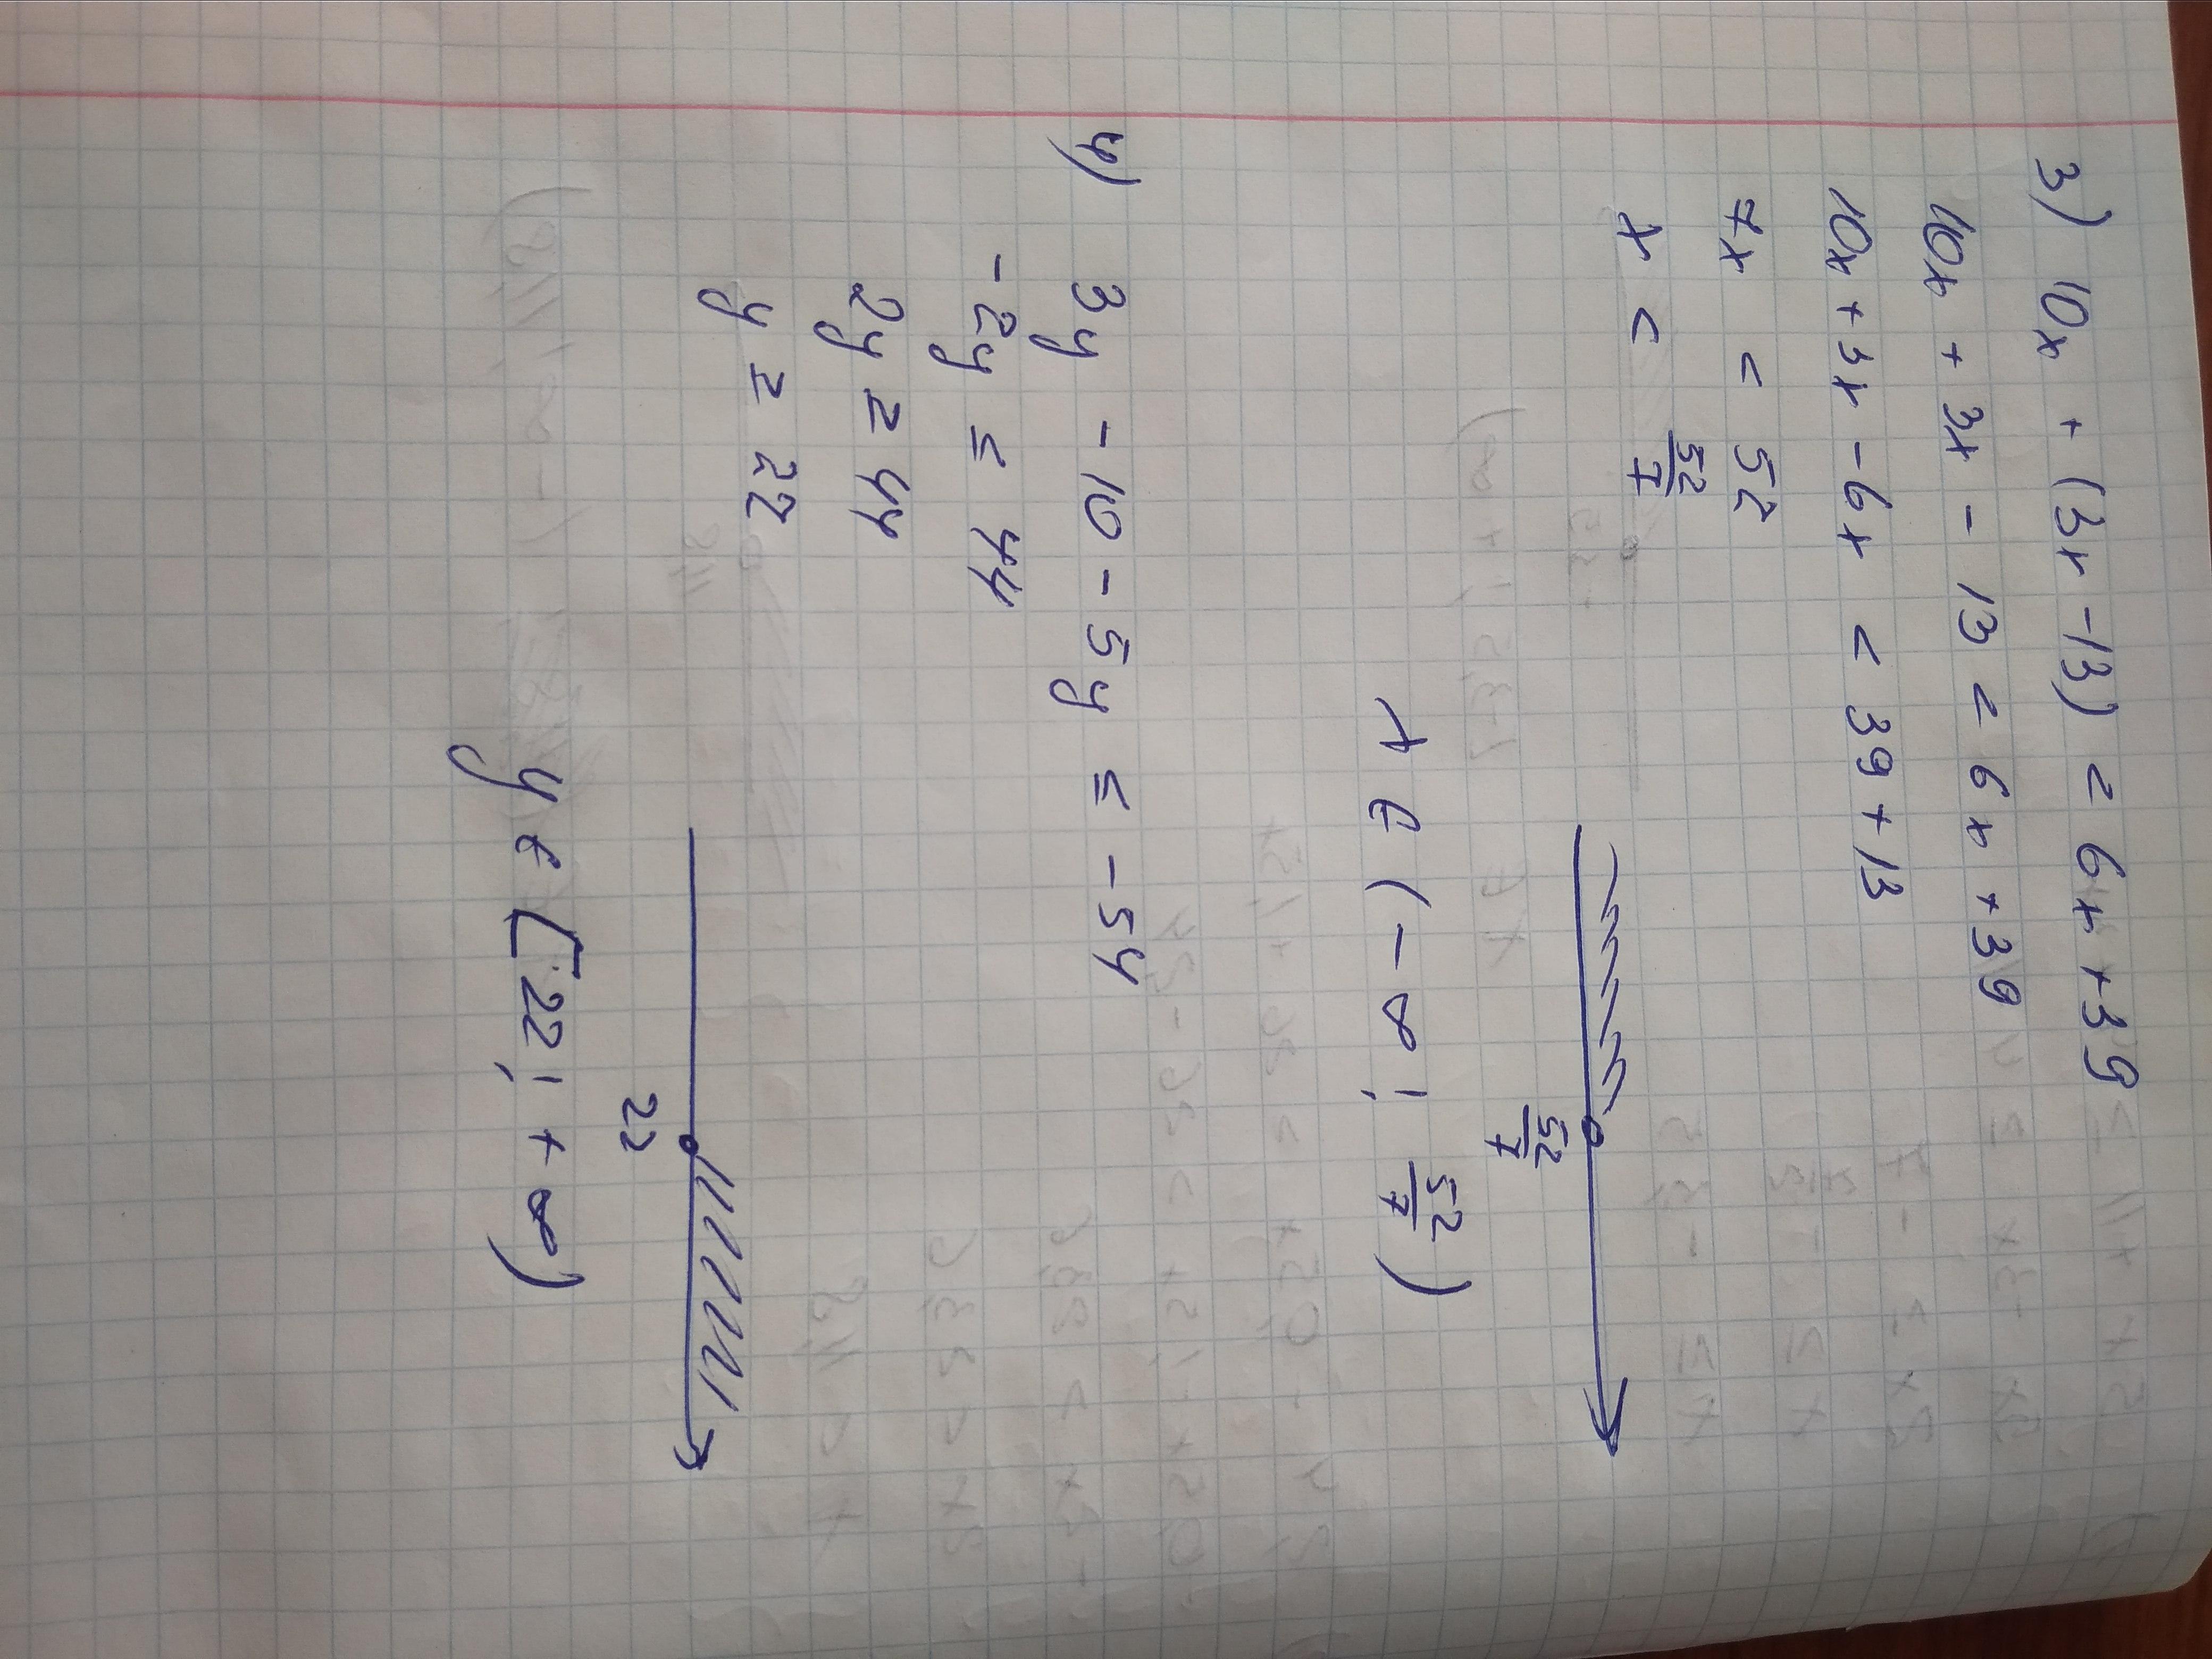 3) 10x + (3x -13) < 6x + 39
10x + 3x - 13 < 6x + 39
10x + 3x - 6x < 39 + 13
7x < 52
x < 52/7
52/7
x ∈ (-∞; 52/7)
4) 3y - 10 - 5y ≤ -54
-2y ≤ 44
2y ≥ 44
y ≥ 22
22
y ∈ [22; +∞)